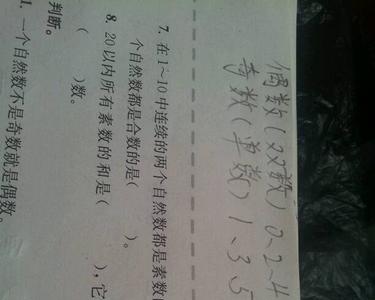 偶数(双数) 0、2、4
奇数(单数) 1、3 5
7. 在1~10中连续的两个自然数都是素数
个自然数都是合数的是(    )。
8. 20以内所有素数的和是(    ),它
(    )数。
判断。
1. 一个自然数不是奇数就是偶数。